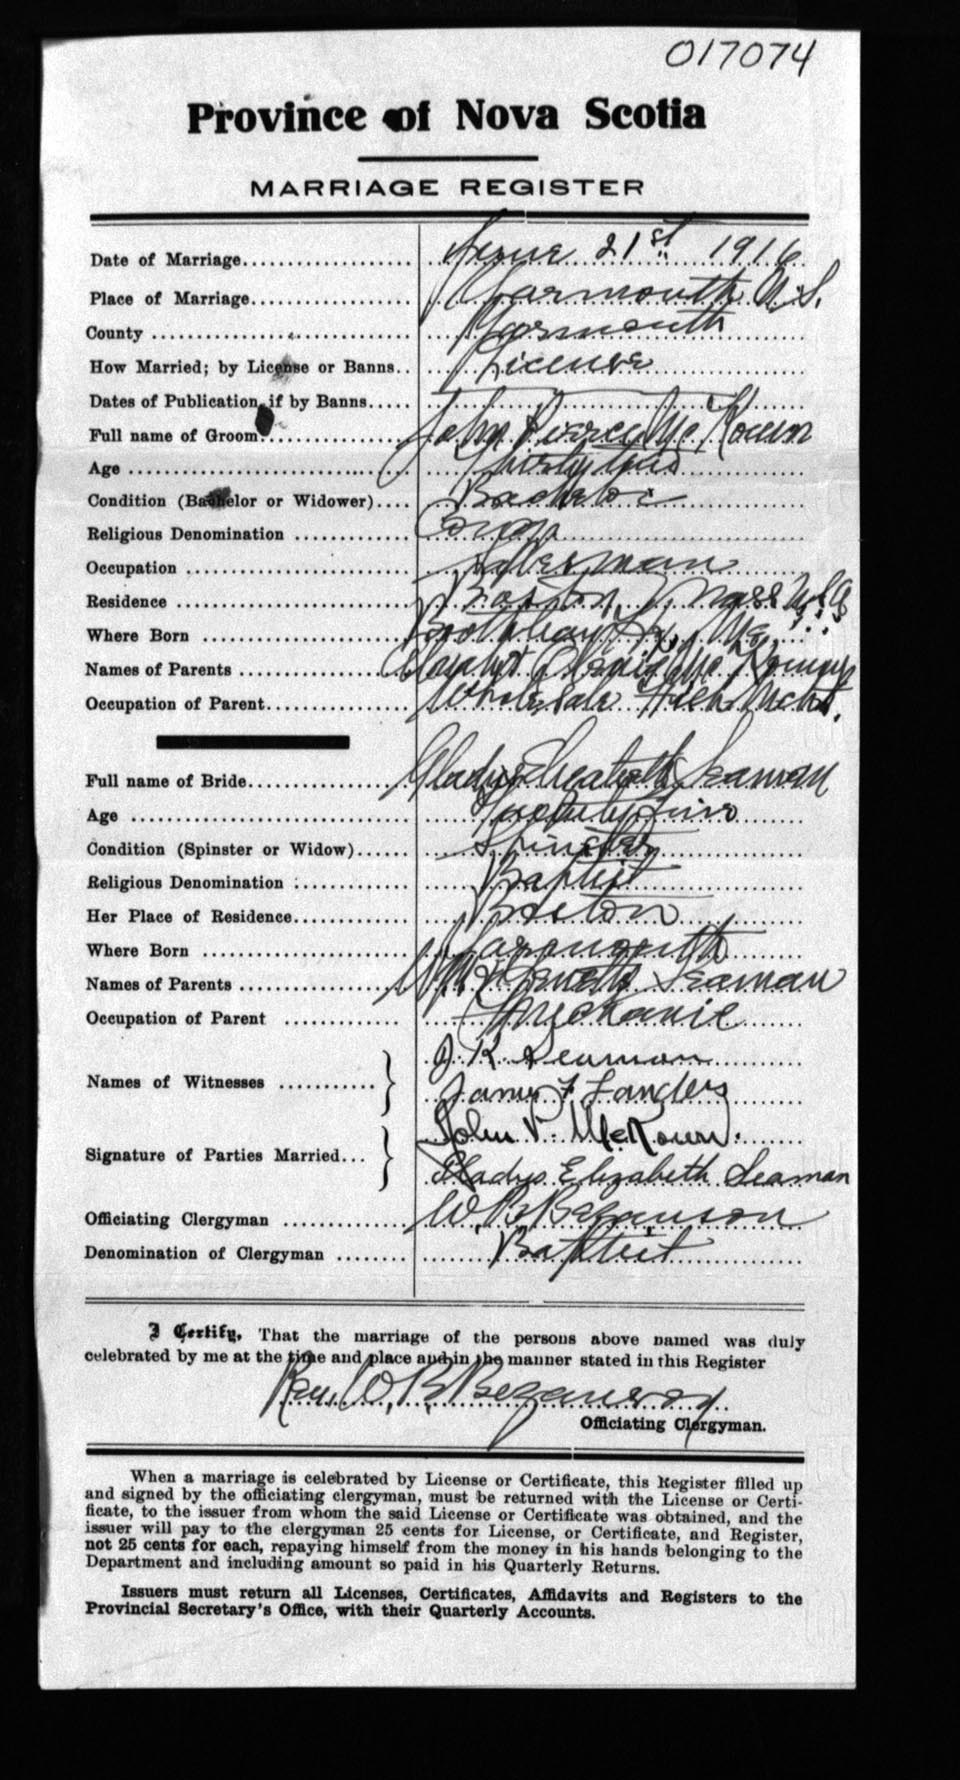 017074
Province of Nova Scotia
MARRIAGE REGISTER
Date of Marriage June 21st 1916
Place of Marriage Yarmouth N.S.
County Yarmouth
How Married; by License or Banns License
Dates of Publication if by Banns
Full name of Groom John Pierce McKown
Age Thirty
Condition (Bachelor or Widower) Bachelor
Religious Denomination Congo
Occupation Salesman
Residence Boston, Mass U.S.A
Where Born Boothbay Hr, Me.
Names of Parents
Occupation of Parent Wholesale Fish Mcht.
Full name of Bride Gladys Elizabeth Seaman
Age Twenty
Condition (Spinster or Widow) Spinster
Religious Denomination Baptist
Her Place of Residence Boston
Where Born Yarmouth
Names of Parents Seaman
Occupation of Parent Mechanic
Names of Witnesses J. K. Seaman
James F Landers
Signature of Parties Married John P. McKown.
Gladys Elizabeth Seaman
Officiating Clergyman W.B. Bezanson
Denomination of Clergyman Baptist
I Certify, That the marriage of the persons above named was duly
celebrated by me at the time and place and in the manner stated in this Register
Rev. W. B. Bezanson
Officiating Clergyman.
When a marriage is celebrated by License or Certificate, this Register filled up
and signed by the officiating clergyman, must be returned with the License or Certi-
ficate, to the issuer from whom the said License or Certificate was obtained, and the
issuer will pay to the clergyman 25 cents for License, or Certificate, and Register,
not 25 cents for each, repaying himself from the money in his hands belonging to the
Department and including amount so paid in his Quarterly Returns.
Issuers must return all Licenses, Certificates, Affidavits and Registers to the
Provincial Secretary's Office, with their Quarterly Accounts.